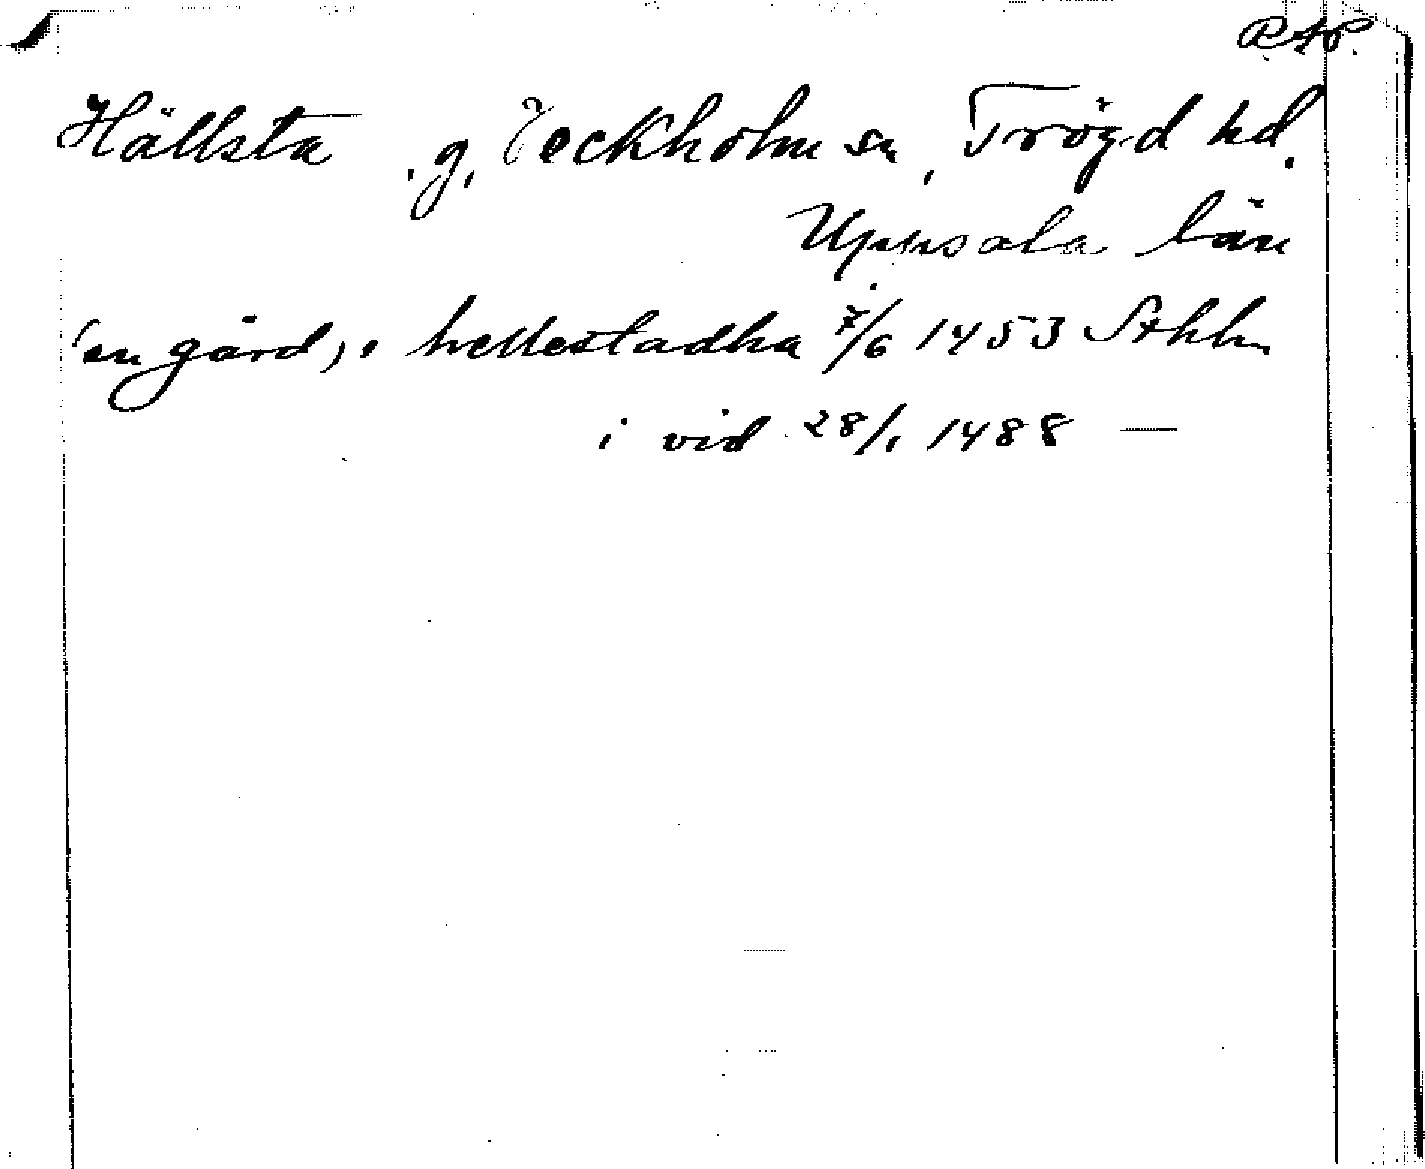 RAP.
Hällsta, g, Veckholm sn, Trögd hd.
Uppsala län
(en gård) i hellestadha 7/6 1453 Sthlm
i vid 28/1 1488 —